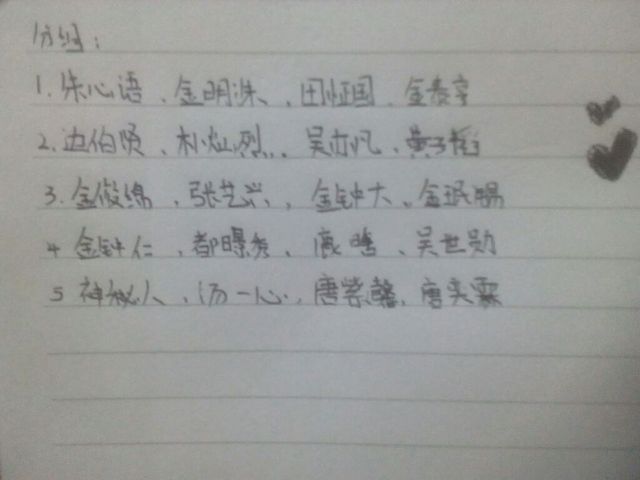 分组：
1. 朱心语、金明洙、田柾国、金泰亨
2. 边伯贤、朴灿烈、吴亦凡、黄子韬
3. 金俊绵、张艺兴、金钟大、金珉锡
4 金钟仁、都暻秀、鹿晗、吴世勋
5 神秘人、汤一心、唐紫馨、唐奕霖